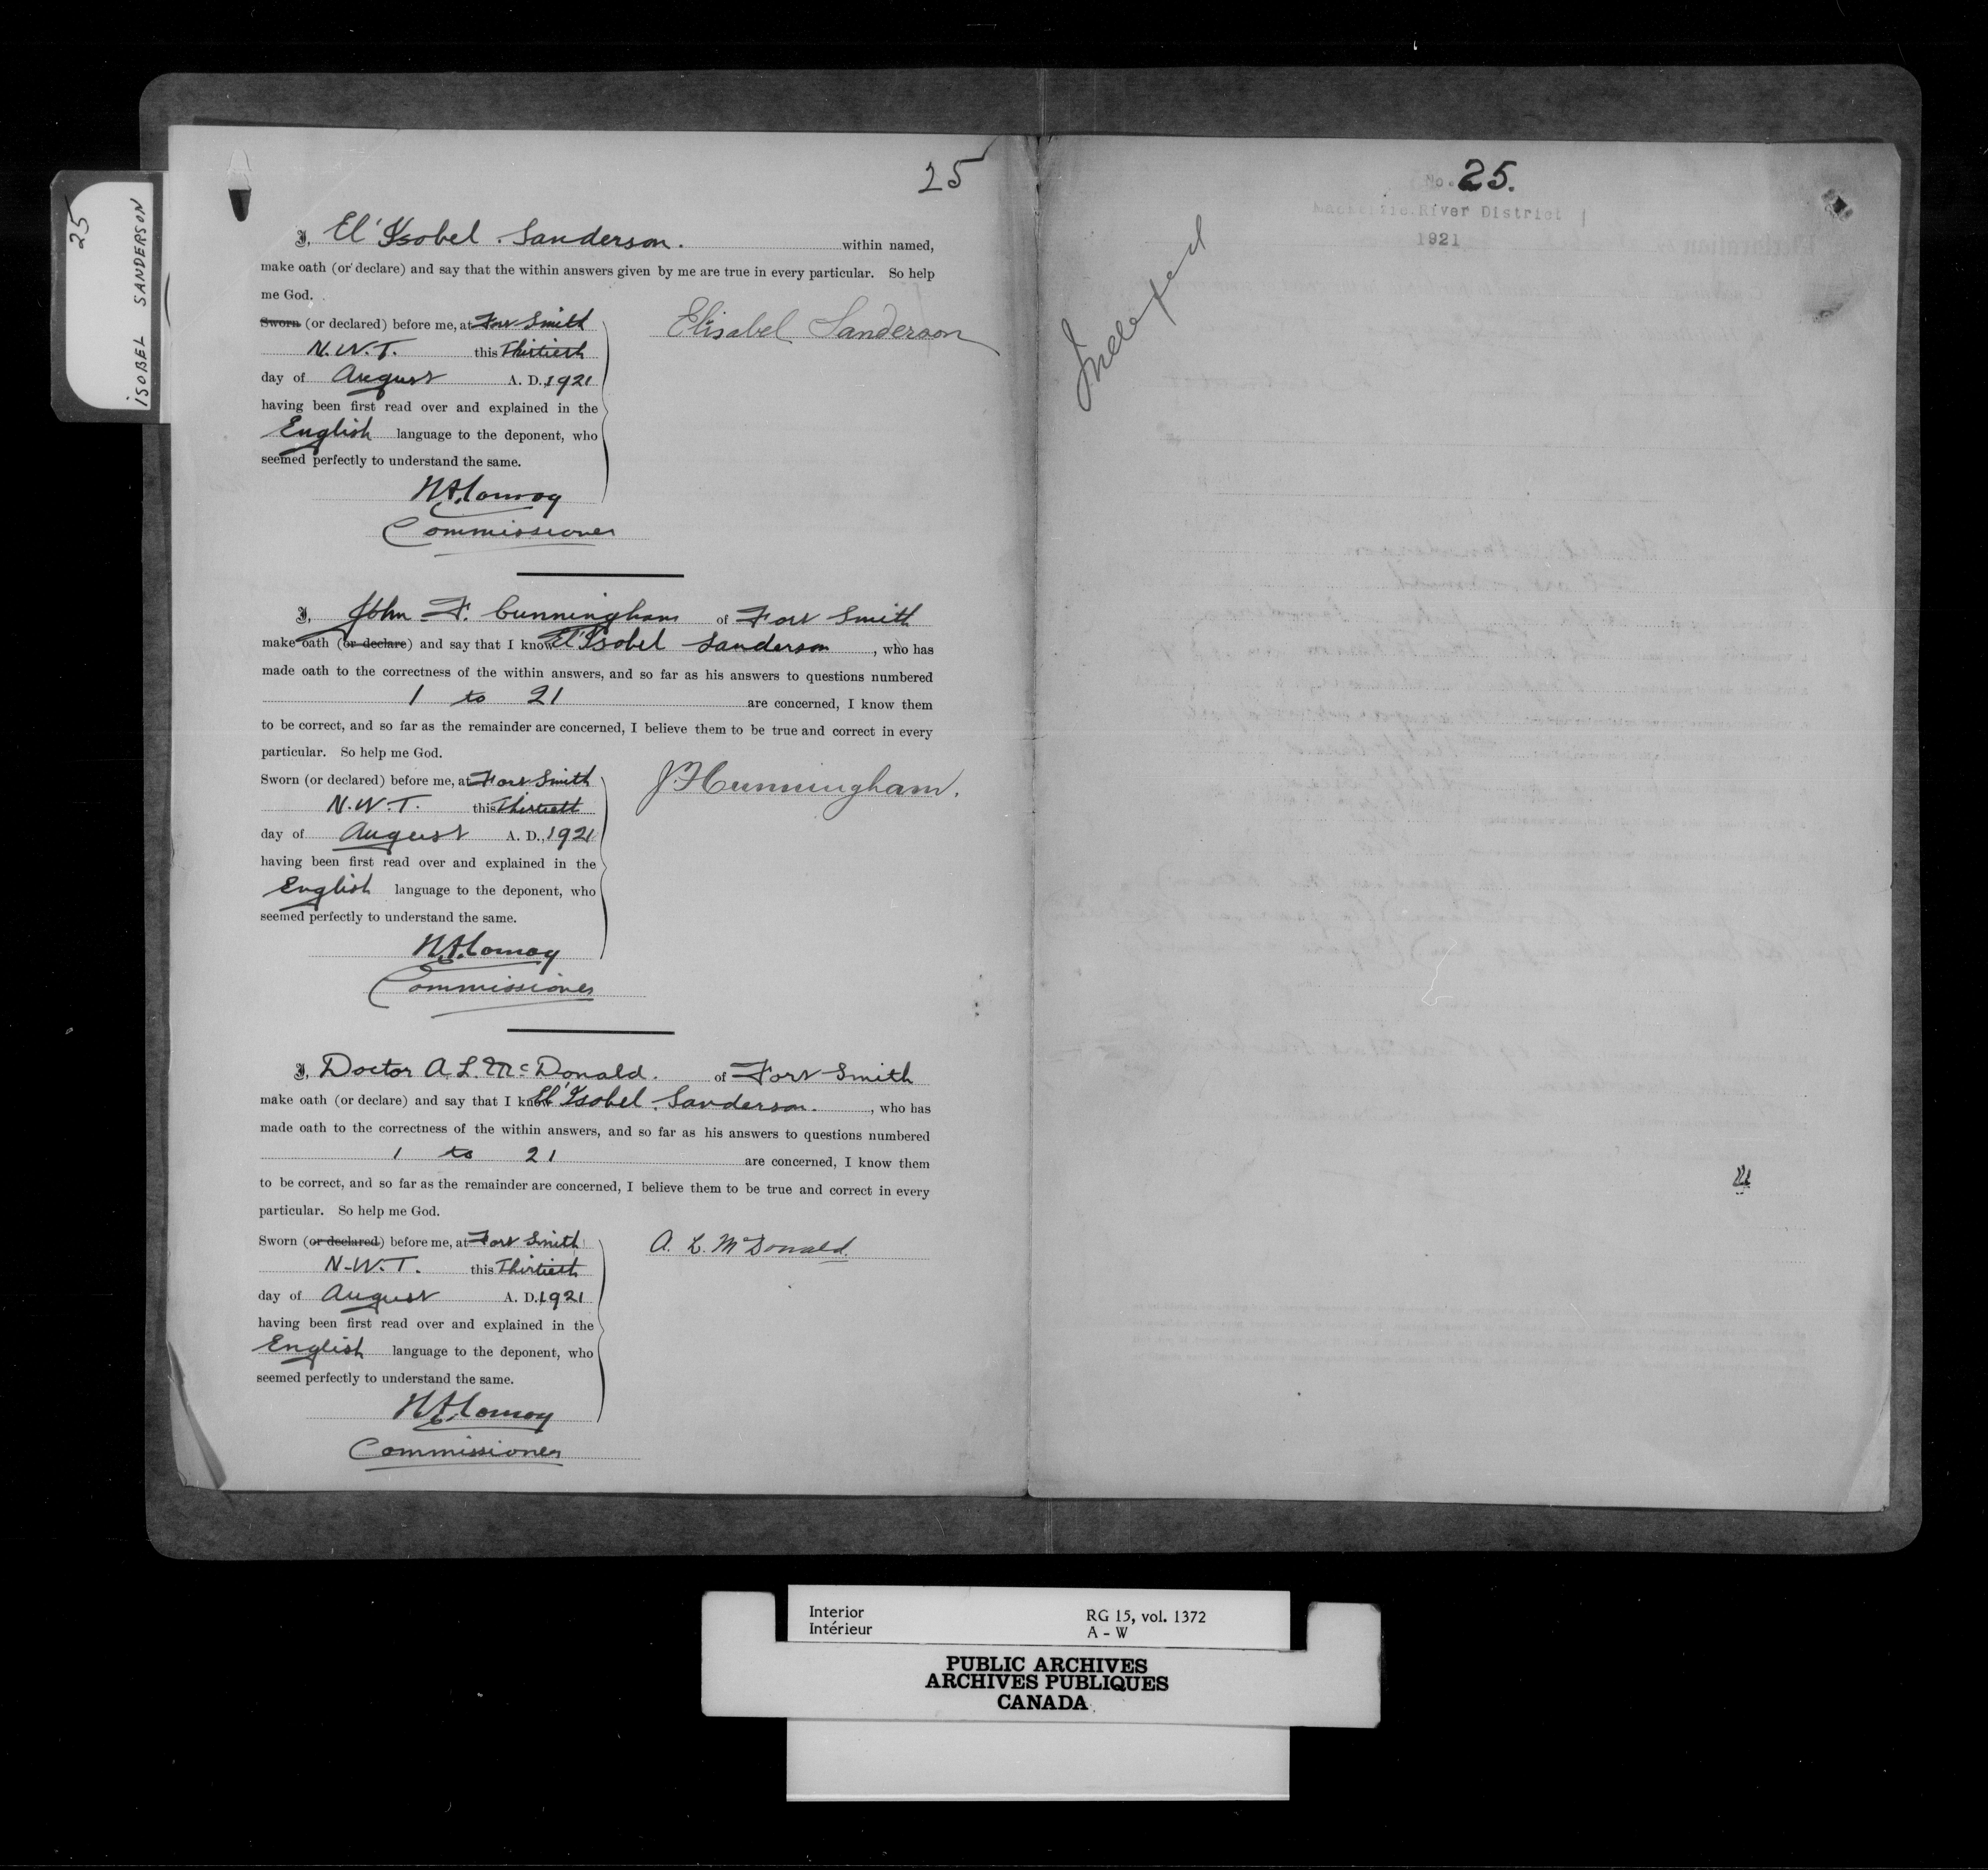 25
ISOBEL SANDERSON
25
I, El'Isobel. Sanderson. within named,
make oath (or declare) and say that the within answers given by me are true in every particular. So help
me God.
Sworn (or declared) before me, at Fort Smith
N.W.T. this Thirtieth
day of August A. D., 1921
having been first read over and explained in the
English language to the deponent, who
seemed perfectly to understand the same.
Elisabel Sanderson
H.A. Conroy
Commissioner
I, John F. Cunningham of Fort Smith
make oath (or declare) and say that I know El'Isobel Sanderson, who has
made oath to the correctness of the within answers, and so far as his answers to questions numbered
1 to 21 are concerned, I know them
to be correct, and so far as the remainder are concerned, I believe them to be true and correct in every
particular. So help me God.
Sworn (or declared) before me, at Fort Smith
N.W.T. this Thirtieth
day of August A. D., 1921
having been first read over and explained in the
English language to the deponent, who
seemed perfectly to understand the same.
J.F. Cunningham.
H.A. Conroy
Commissioner
I, Doctor A. L. McDonald. of Fort Smith
make oath (or declare) and say that I know El'Isobel. Sanderson., who has
made oath to the correctness of the within answers, and so far as his answers to questions numbered
1 to 21 are concerned, I know them
to be correct, and so far as the remainder are concerned, I believe them to be true and correct in every
particular. So help me God.
Sworn (or declared) before me, at Fort Smith
N.W.T. this Thirtieth
day of August A. D., 1921
having been first read over and explained in the
English language to the deponent, who
seemed perfectly to understand the same.
A. L. McDonald
H.A. Conroy
Commissioner
No. 25.
Mackenzie River District
1921
Indexed
Interior
Intérieur
RG 15, vol. 1372
A - W
PUBLIC ARCHIVES
ARCHIVES PUBLIQUES
CANADA